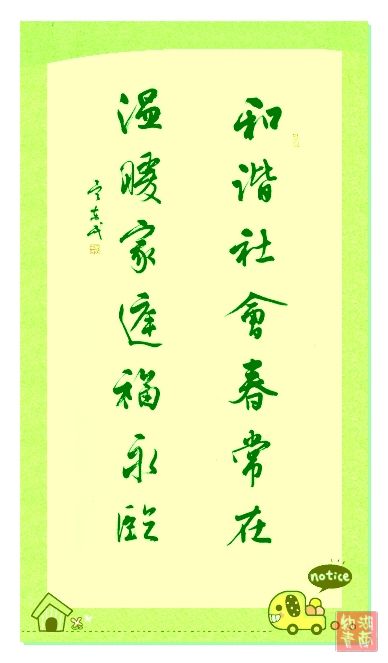 和谐社會春常在
温暖家庭福永臨
notice